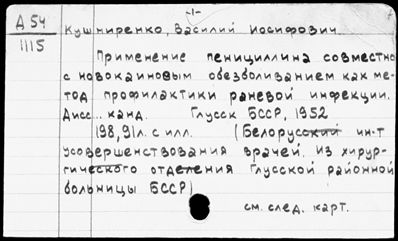 -1-
Д 54
1115
Кушниренко, Василий Иосифович.
Применение пенициллина совместно
с новокаиновым обезболиванием как ме-
тод профилактики раневой инфекции.
Дисс... канд. Глусск БССР, 1952
198,91л. с илл. (Белорусский ин-т
усовершенствования врачей. Из хирур-
гического отделения Глусской районной
больницы БССР)
см. след. карт.